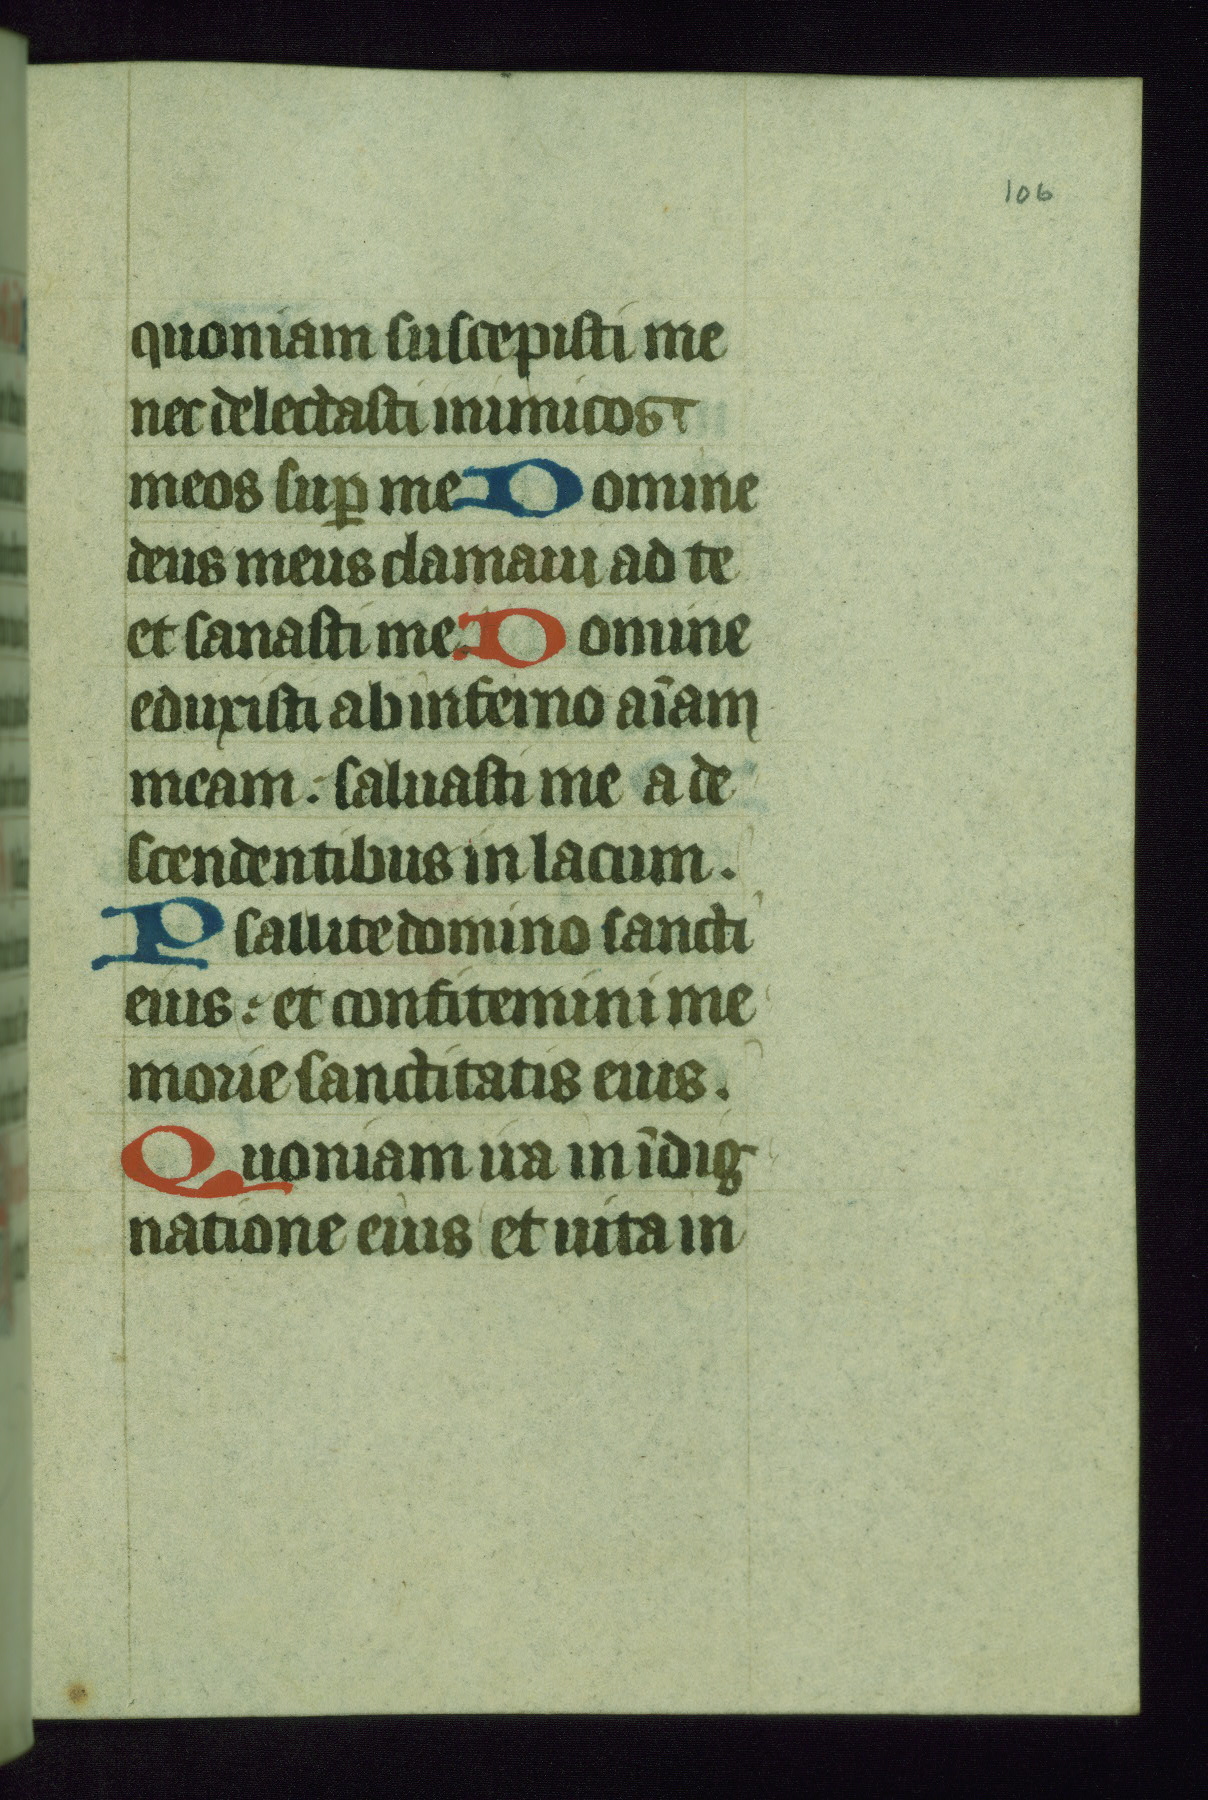 106
quoniam suscepisti me
nec delectasti inimicos
meos sup̱ me Domine
deus meus clamaui ad te
et sanasti me. Domine
eduxisti ab inferno aı̅am
meam : saluasti me a de
scendentibus in lacum .
Psallite domino sancti
eius : et confitemini me
morie sanctitatis eius .
Quoniam ira in i̅dig
natione eius et uita in